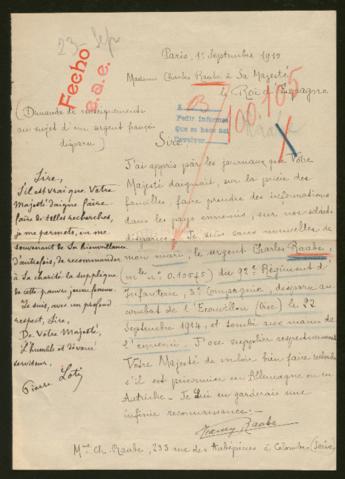 23-Sep
Fecho
s.a.e.
Paris, 1er Septembre 1919
Madame Charles Raabe à Sa Majesté
le Roi d'Espagne
100,105
Pedir Informes
Que se hace así
(Demande de renseignements
au sujet d'un sergent français
disparu)
Sire,
J'ai appris par les journaux que Votre
Majesté daignait, sur la prière des
familles, faire prendre des informations
dans les pays ennemis, sur nos soldats
disparus. Je suis sans nouvelles de
mon mari, le sergent Charles Raabe,
(mle no 0.10545) du 92e Régiment d'
Infanterie, 3e Compagnie, disparu au
combat de l'Ecouvillon (Oise) le 22
Septembre 1914, et tombé aux mains de
l'ennemi. J'ose supplier respectueusement
Votre Majesté de vouloir bien faire rechercher
s'il est prisonnier en Allemagne ou en
Autriche. Je Lui en garderais une
infinie reconnaissance.
Fanny Raabe
Mme Ch. Raabe, 233 rue des Aubépines à Colombes (Seine)
Sire,
S'il est vrai que Votre
Majesté daigne faire
faire de telles recherches,
je me permets, en me
souvenant de Sa bienveillance
d'autrefois, de recommander
à Sa charité la supplique
de cette pauvre jeune femme.
Je suis, avec un profond
respect, Sire,
De Votre Majesté,
L'humble et dévoué
serviteur,
Pierre Loti